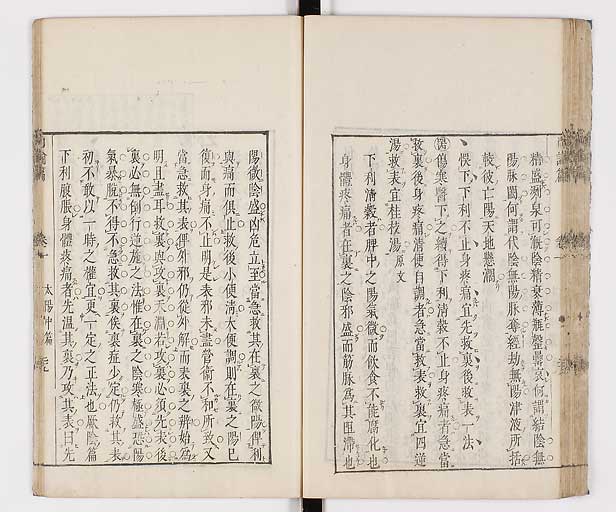 精盛洌泉可漑陰精衰薄瓶罄罍哀何謂結陰無
陽脉闔何謂代陰無陽脉奪經劫無陽津液所括
較彼亡陽天地懸濶
悞下下利不止身疼痛宜先救裏後救表一法
傷寒醫下之續得下利清穀不止身疼痛者急當
救裏後身疼痛清便自調者急當救表救裏宜四逆
湯救表宜桂枝湯原文
下利清穀者脾中之陽氣微而飲食不能腐化也
身體疼痛者在裏之陰邪盛而筋脉爲其阻滯也
陽微陰盛凶危立至當急救其在裏之微陽俾利
與痛而俱止救後小便清大便調則在裏之陽已
復而身痛不止明是表邪未盡營衛不和所致又
當急救其表俾外邪仍從外解而表裏之辨始爲
明且盡耳救裏與攻裏天淵若攻裏必須先表後
裏必無倒行逆施之法惟在裏之陰寒極盛恐陽
氣暴脫不得不急救其裏俟裏症少定仍救其表
初不敢以一時之權宜更一定之正法也厥陰篇
下利腹脹身體疼痛者先温其裏乃攻其表曰先
卷一
太陽中篇